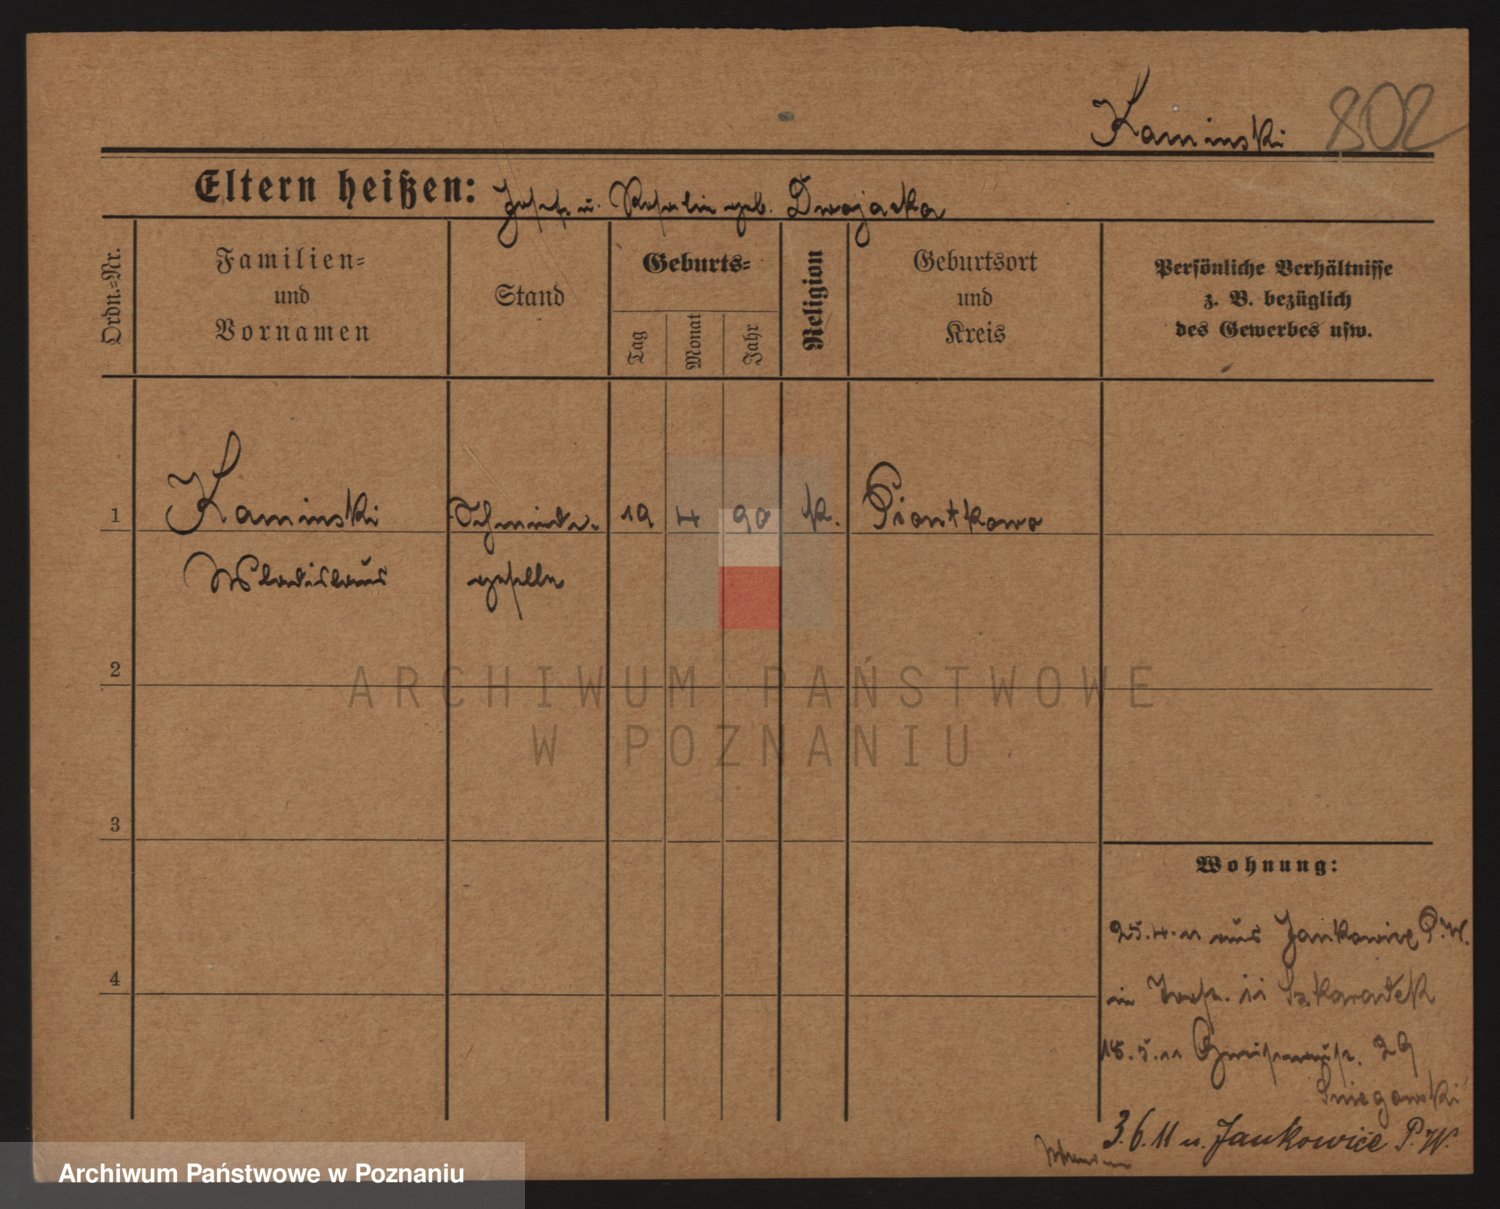 Kaminski 802
Eltern heißen: Josef u. Rosalie geb. Dwojacka
Ordn.-Nr.
Familien-
und
Vornamen
Stand
Geburts-
Tag
Monat
Jahr
Religion
Geburtsort
und
Kreis
Persönliche Verhältnisse
z. B. bezüglich
des Gewerbes usw.
1 Kaminski Schmiede- 19 4 90 k. Piontkowo
Wladislaus geselle
2
ARCHIWUM PAŃSTWOWE
W POZNANIU
3
Wohnung:
25.4.11 aus Jankowice P.W.
in 11 Szkaradek
4
18.5.11 29
Sniegowski
3.6.11 n. Jankowice P.W.
Archiwum Państwowe w Poznaniu